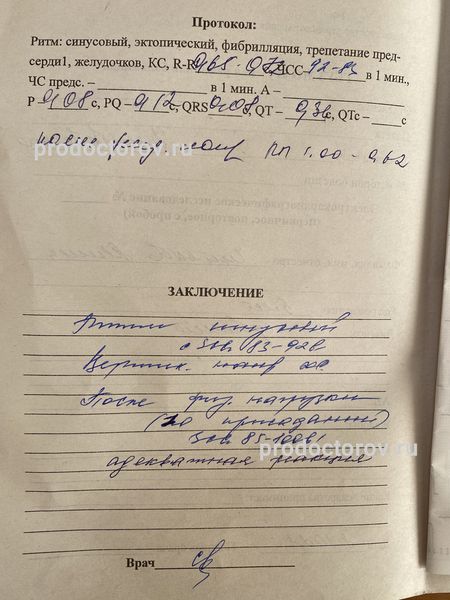 Протокол:
Ритм: синусовый, эктопический, фибрилляция, трепетание пред-
серди1, желудочков, КС, R-R 0,65 - 0,72 ЧСС 92-83 в 1 мин.,
ЧС предс. – в 1 мин. А –
Р 0,08 с, PQ – 0,12 с, QRS 0,08 с, QT – 0,36 с, QTc – с
после физ. нагр RR 1.00 - 0,62
prodoctorov.ru
ЗАКЛЮЧЕНИЕ
Ритм синусовый
с ЧСС 83-92 в 1
Вертик. полож
После физ нагрузки
(20 приседаний)
85-100 в 1
prodoctorov.ru
адекватная реакция
Врач